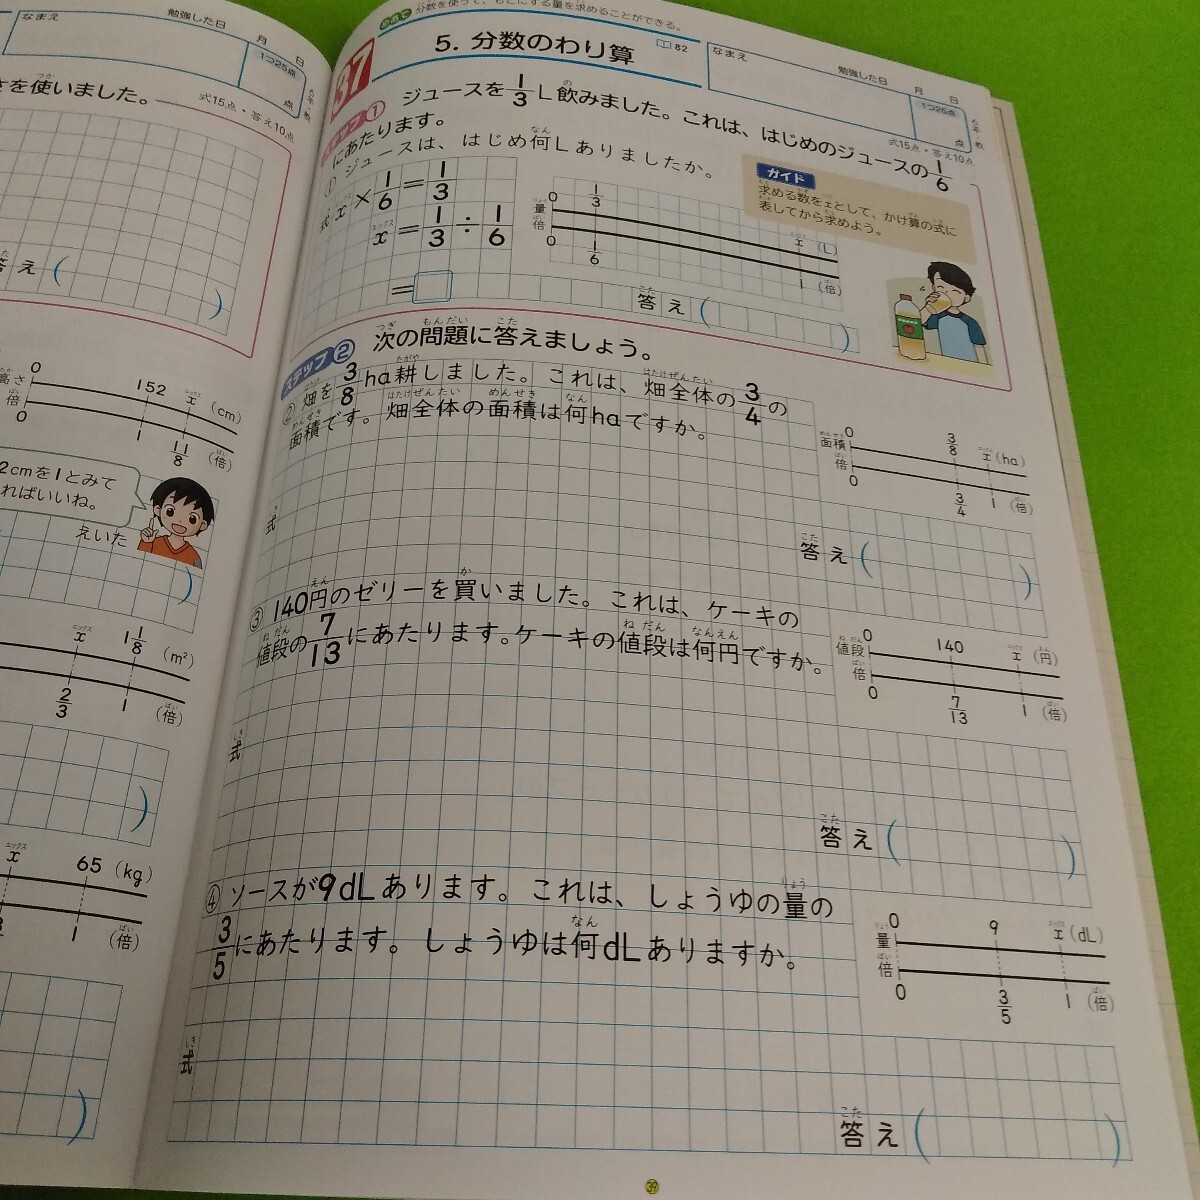 なまえ
勉強した日 月 日
1つ25点
点
さを使いました。
式15点・答え10点
答え( )
高さ 0 152 x (cm)
倍 0 1 11/8 (倍)
2cmを1とみて
ればいいね。
えいた
x 1 1/8 (m²)
2/3 1 (倍)
x 65 (kg)
1 (倍)
めあて 分数を使って、もとにする量を求めることができる。
37
5. 分数のわり算
82
なまえ
勉強した日 月 日
1つ25点
点
式15点・答え10点
ステップ1
ジュースを1/3L飲みました。これは、はじめのジュースの1/6
にあたります。
① ジュースは、はじめ何Lありましたか。
式 x×1/6=1/3
x=1/3÷1/6
=□
答え( )
量 0 1/3 x (L)
倍 0 1/6 1 (倍)
ガイド
求める数をxとして、かけ算の式に
表してから求めよう。
ステップ2 次の問題に答えましょう。
② 畑を3/8ha耕しました。これは、畑全体の3/4の
面積です。畑全体の面積は何haですか。
面積 0 3/8 x (ha)
倍 0 3/4 1 (倍)
式
答え( )
③ 140円のゼリーを買いました。これは、ケーキの
値段の7/13にあたります。ケーキの値段は何円ですか。
値段 0 140 x (円)
倍 0 7/13 1 (倍)
式
答え( )
④ ソースが9dLあります。これは、しょうゆの量の
3/5にあたります。しょうゆは何dLありますか。
量 0 9 x (dL)
倍 0 3/5 1 (倍)
式
答え( )
39